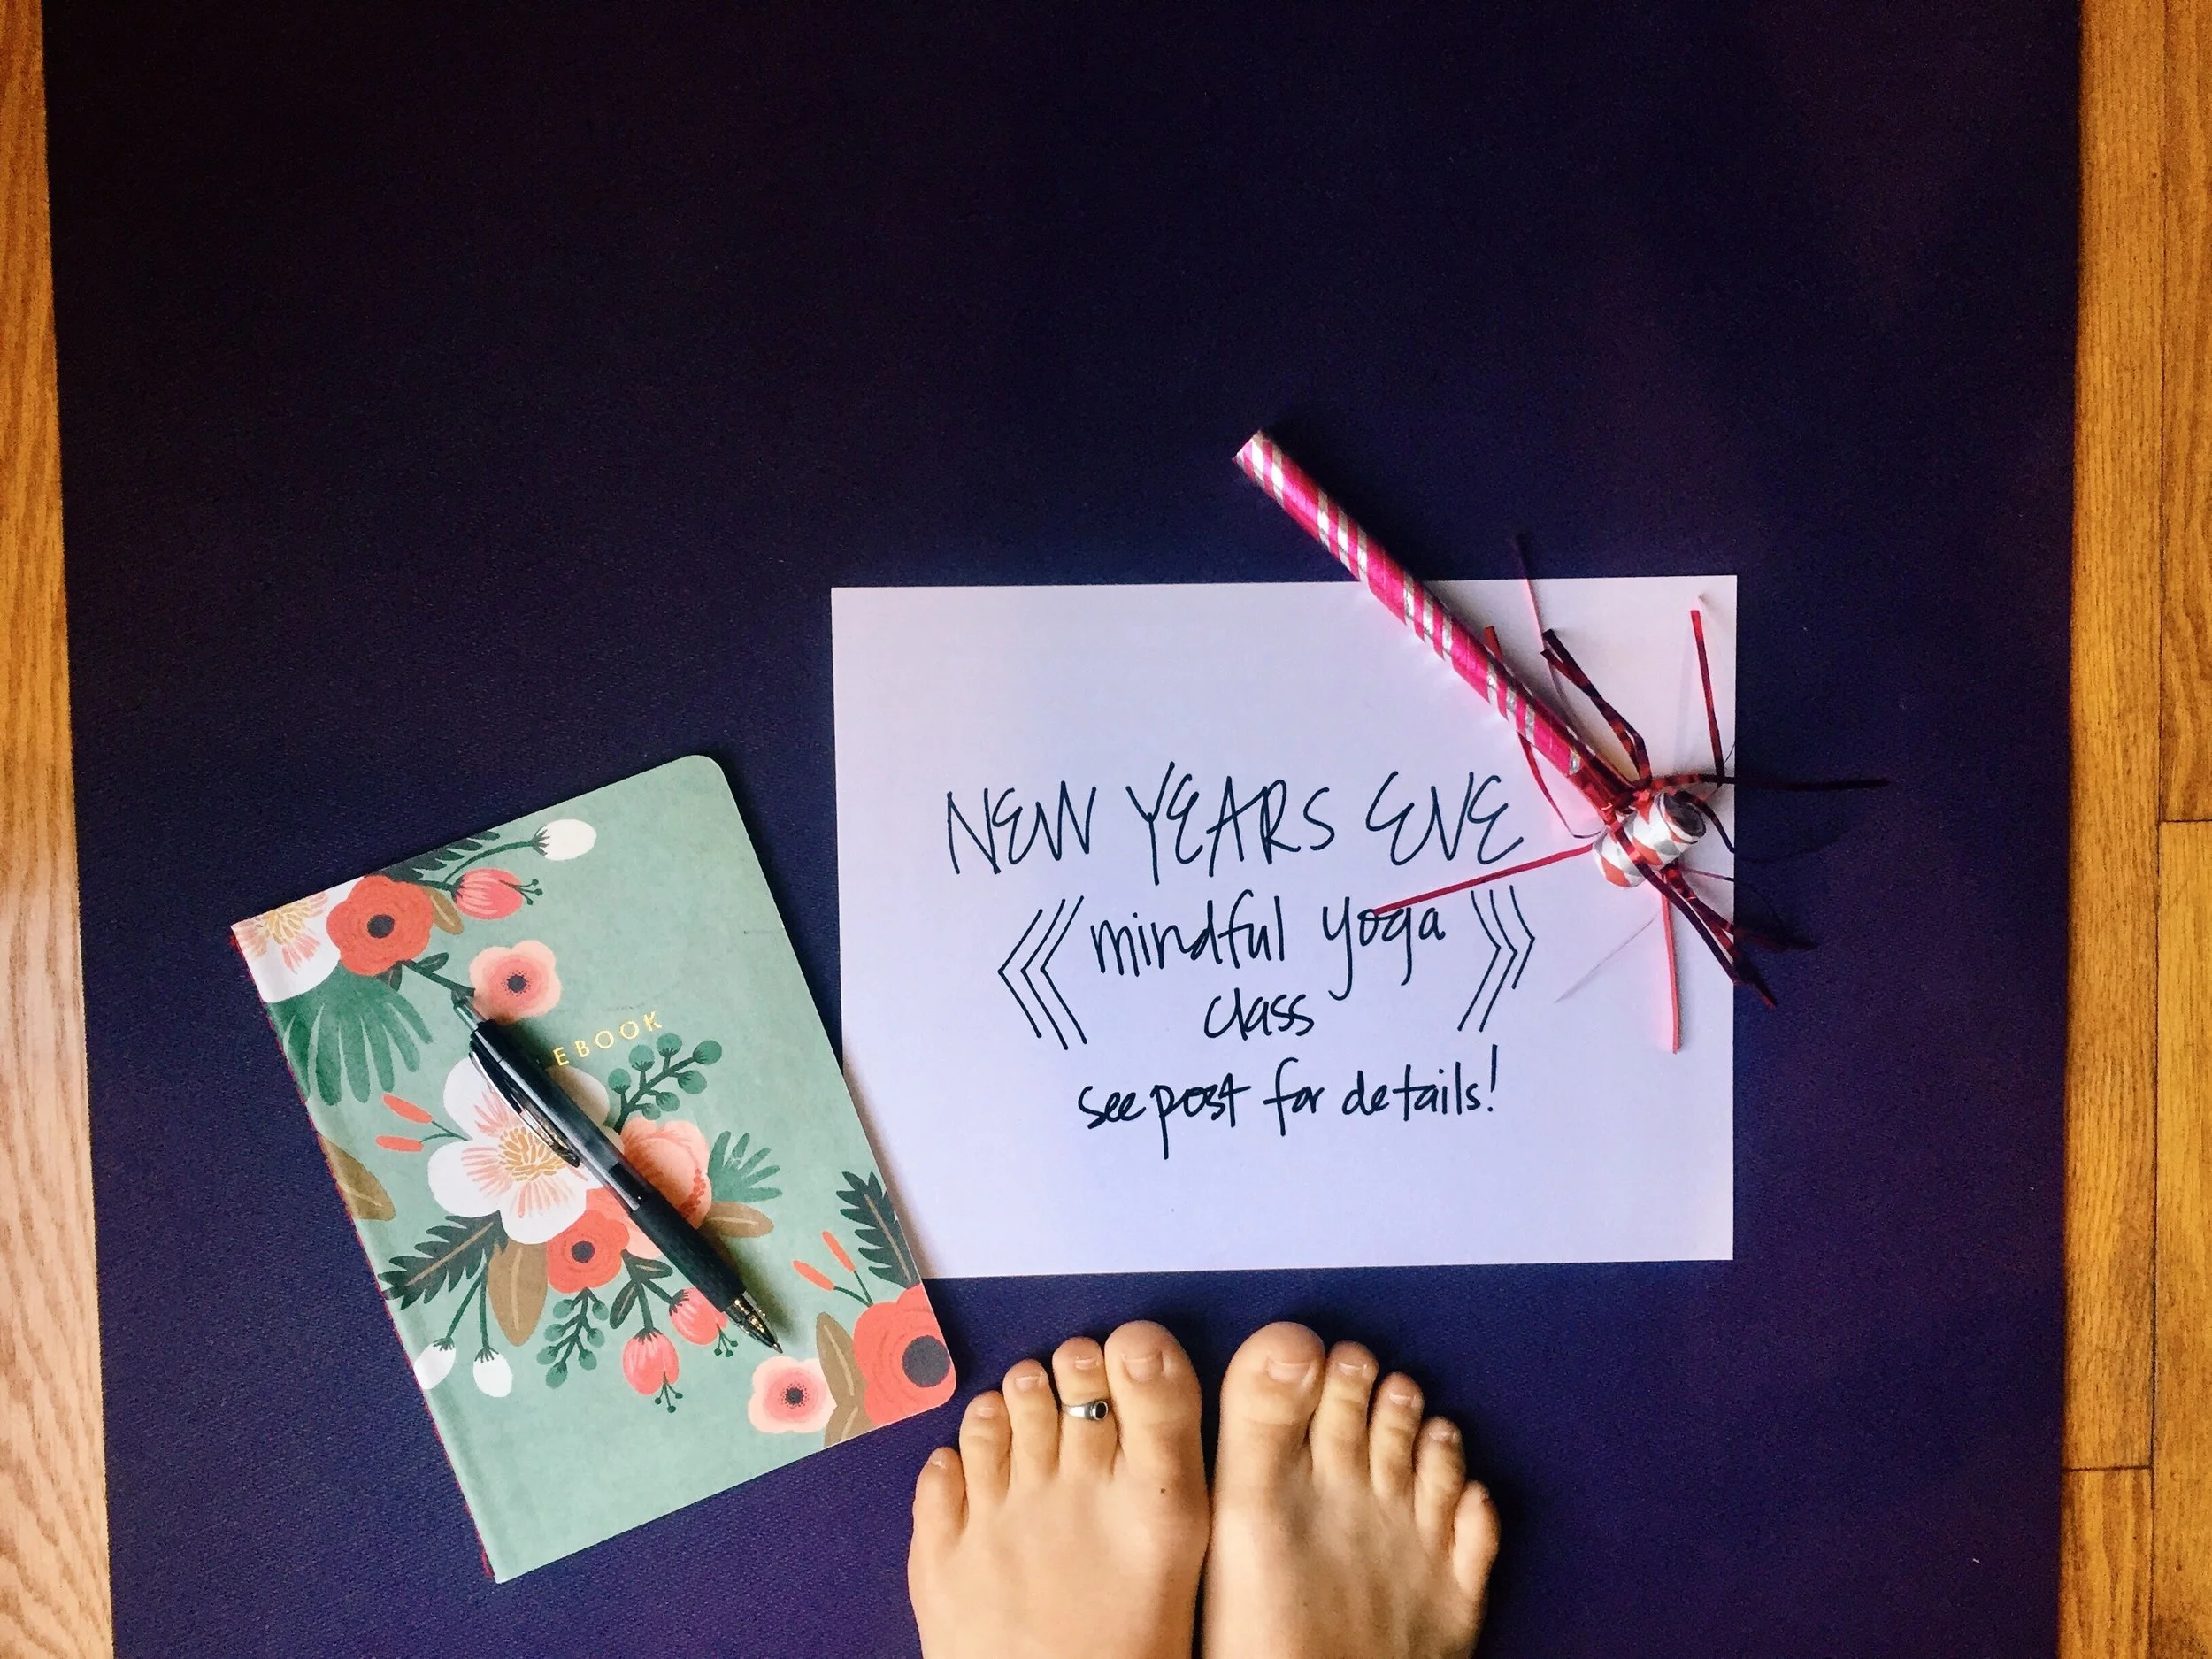 EBOOK
NEW YEARS EVE
mindful yoga
class
see post for details!